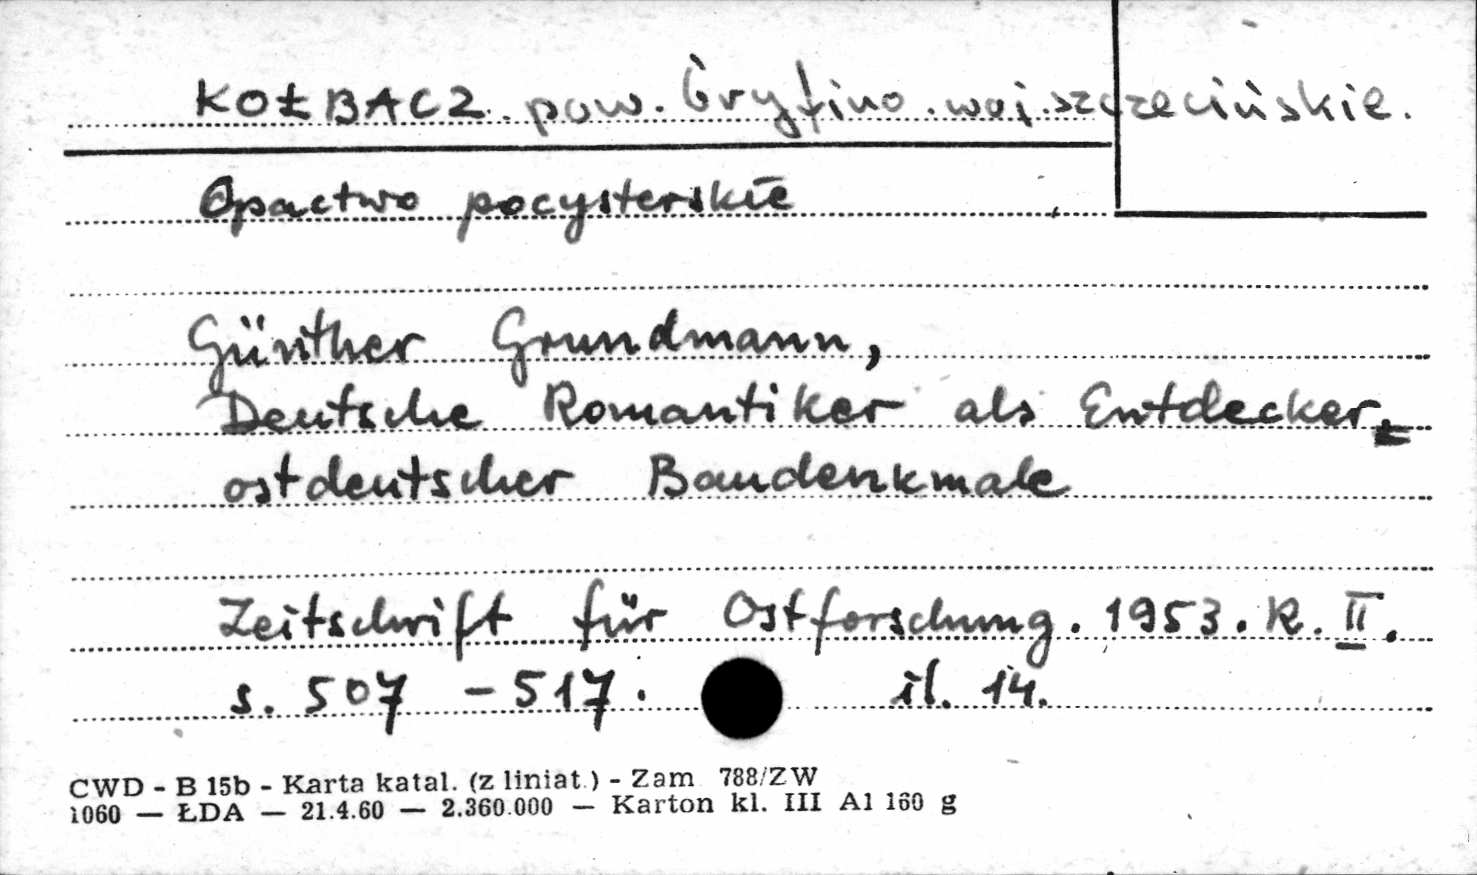 KOŁBACZ. pow. Gryfino. woj. szczecińskie.
Opactwo pocysterskie
Günther Grundmann,
Deutsche Romantiker als Entdecker
ostdeutscher Baudenkmale
Zeitschrift für Ostforschung. 1953. R. II.
s. 507 - 517. il. 14.
CWD - B 15b - Karta katal. (z liniat.) - Zam 788/ZW
1060 — ŁDA — 21.4.60 — 2.360.000 — Karton kl. III A1 160 g